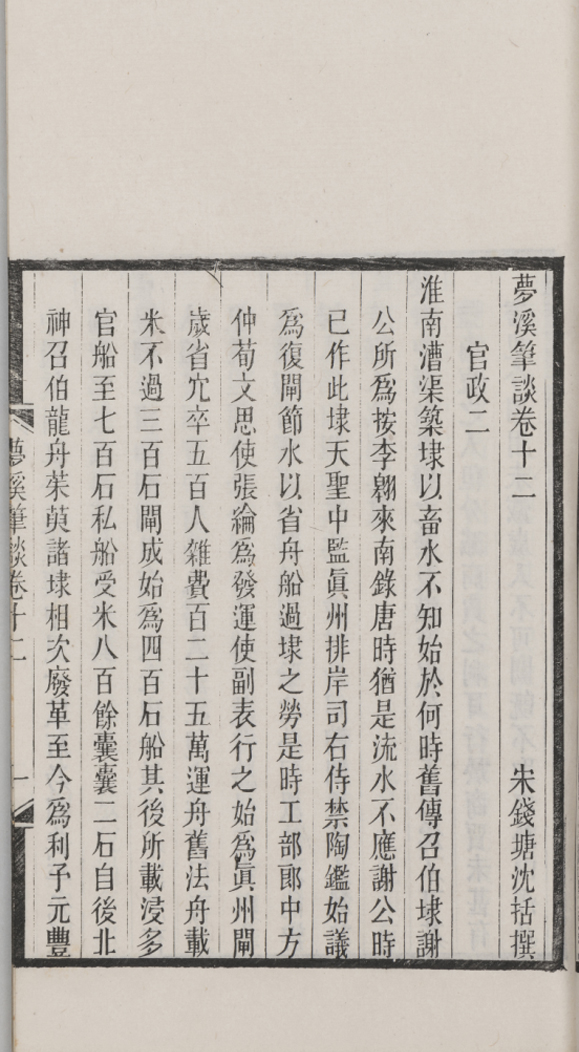 夢溪筆談卷十二　　　　　　　宋錢塘沈括撰
官政二
淮南漕渠築埭以畜水不知始於何時舊傳召伯埭謝
公所為按李翱來南錄唐時猶是流水不應謝公時
已作此埭天聖中監眞州排岸司右侍禁陶鑑始議
為復閘節水以省舟船過埭之勞是時工部郎中方
仲荀文思使張綸為發運使副表行之始為眞州閘
歲省冗卒五百人雜費百二十五萬運舟舊法舟載
米不過三百石閘成始為四百石船其後所載浸多
官船至七百石私船受米八百餘囊囊二石自後北
神召伯龍舟茱萸諸埭相次廢革至今為利子元豐
夢溪筆談卷十二　　一